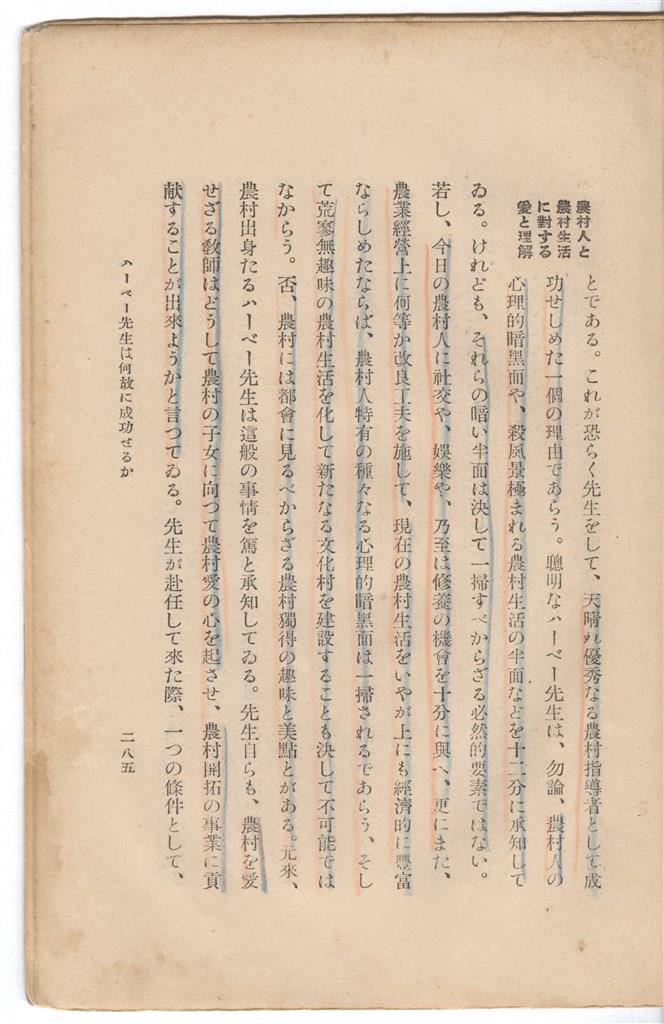 農村人と
農村生活
に對する
愛と理解
とである。これが恐らく先生をして、天晴れ優秀なる農村指導者として成
功せしめた一個の理由であらう。聰明なハーベー先生は、勿論、農村人の
心理的暗黑面や、殺風景極まれる農村生活の半面などを十二分に承知して
ゐる。けれども、それらの暗い半面は決して一掃すべからざる必然的要素ではない。
若し、今日の農村人に社交や、娛樂や、乃至は修養の機會を十分に與へ、更にまた、
農業經營上に何等か改良工夫を施して、現在の農村生活をいやが上にも經濟的に豐富
ならしめたならば、農村人特有の種々なる心理的暗黑面は一掃されるであらう、そし
て荒寥無趣味の農村生活を化して新たなる文化村を建設することも決して不可能では
なからう。否、農村には都會に見るべからざる農村獨得の趣味と美點とがある。元來、
農村出身たるハーベー先生は這般の事情を篤と承知してゐる。先生自らも、農村を愛
せざる敎師はどうして農村の子女に向つて農村愛の心を起させ、農村開拓の事業に貢
献することが出來ようかと言つてゐる。先生が赴任して來た際、一つの條件として、
ハーベー先生は何故に成功せるか
二八五